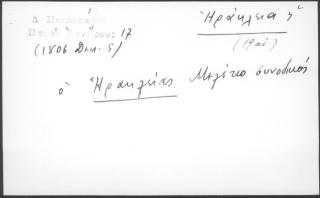 Δ Πετρακάκο
17
(1806 Δεκ. 5)
Ἡράκλεια ἡ
(19 αἰ.)
ὁ Ἡρακλείας Μελέτιο συνοδικός